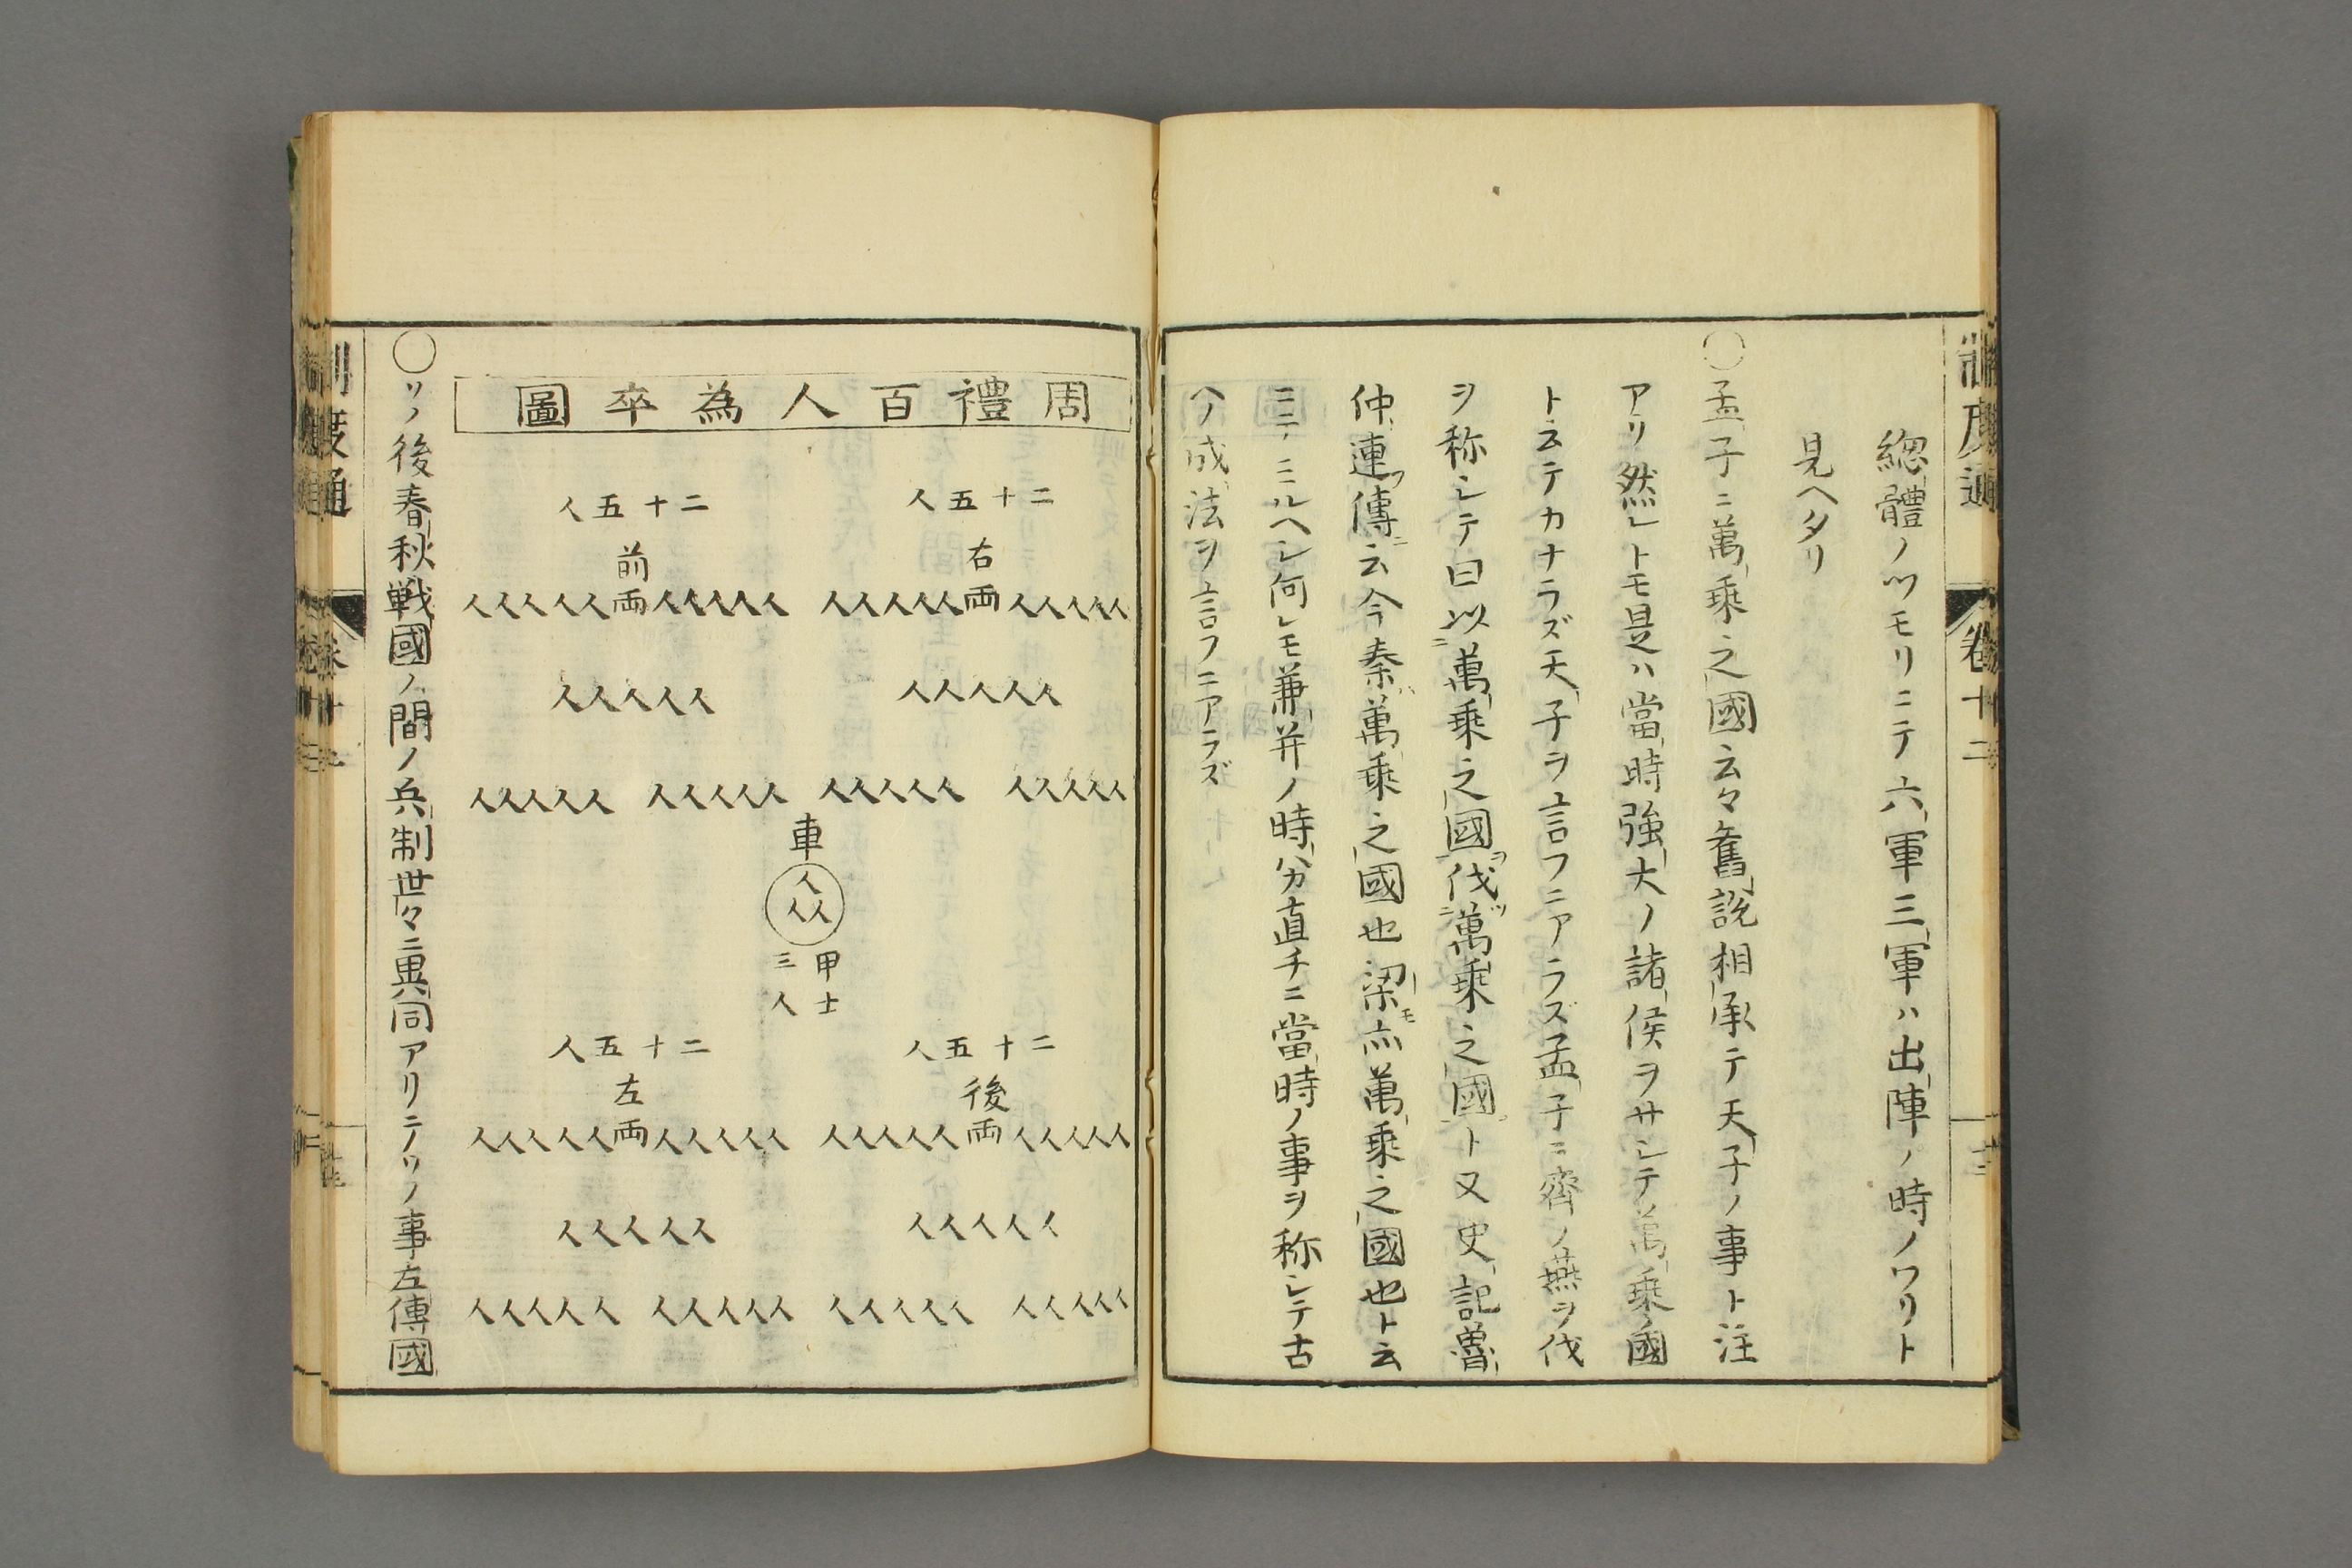 制度通
卷十二
十三
總體ノツモリニテ六軍三軍ハ出陣ノ時ノワリト
見ヘタリ
○孟子ニ萬乘之國云々舊說相承テ天子ノ事ト注
アリ然レトモ是ハ當時強大ノ諸侯ヲサシテ萬乘ノ國
ト云テカナラズ天子ヲ言フニアラズ孟子ニ齊ノ燕ヲ伐
ヲ称シテ曰以萬乘之國伐萬乘之國ト又史記魯
仲連傳ニ云今秦萬乘之國也梁亦萬乘之國也ト云
何レモ兼并ノ時分直チニ當時ノ事ヲ称シテ古
ヘノ成法ヲ言フニアラズ
周禮百人為卒圖
二十五人
右
人人人人人両人人人人人
人人人人人
人人人人人 人人人人人
二十五人
前
人人人人人両人人人人人
人人人人人
人人人人人 人人人人人
車
人
人人
甲士
三人
二十五人
後
人人人人人両人人人人人
人人人人人
人人人人人 人人人人人
二十五人
左
人人人人人両人人人人人
人人人人人
人人人人人 人人人人人
○ソノ後春秋戦國ノ間ノ兵制世々ニ異同アリテソノ事左傳國
制度通